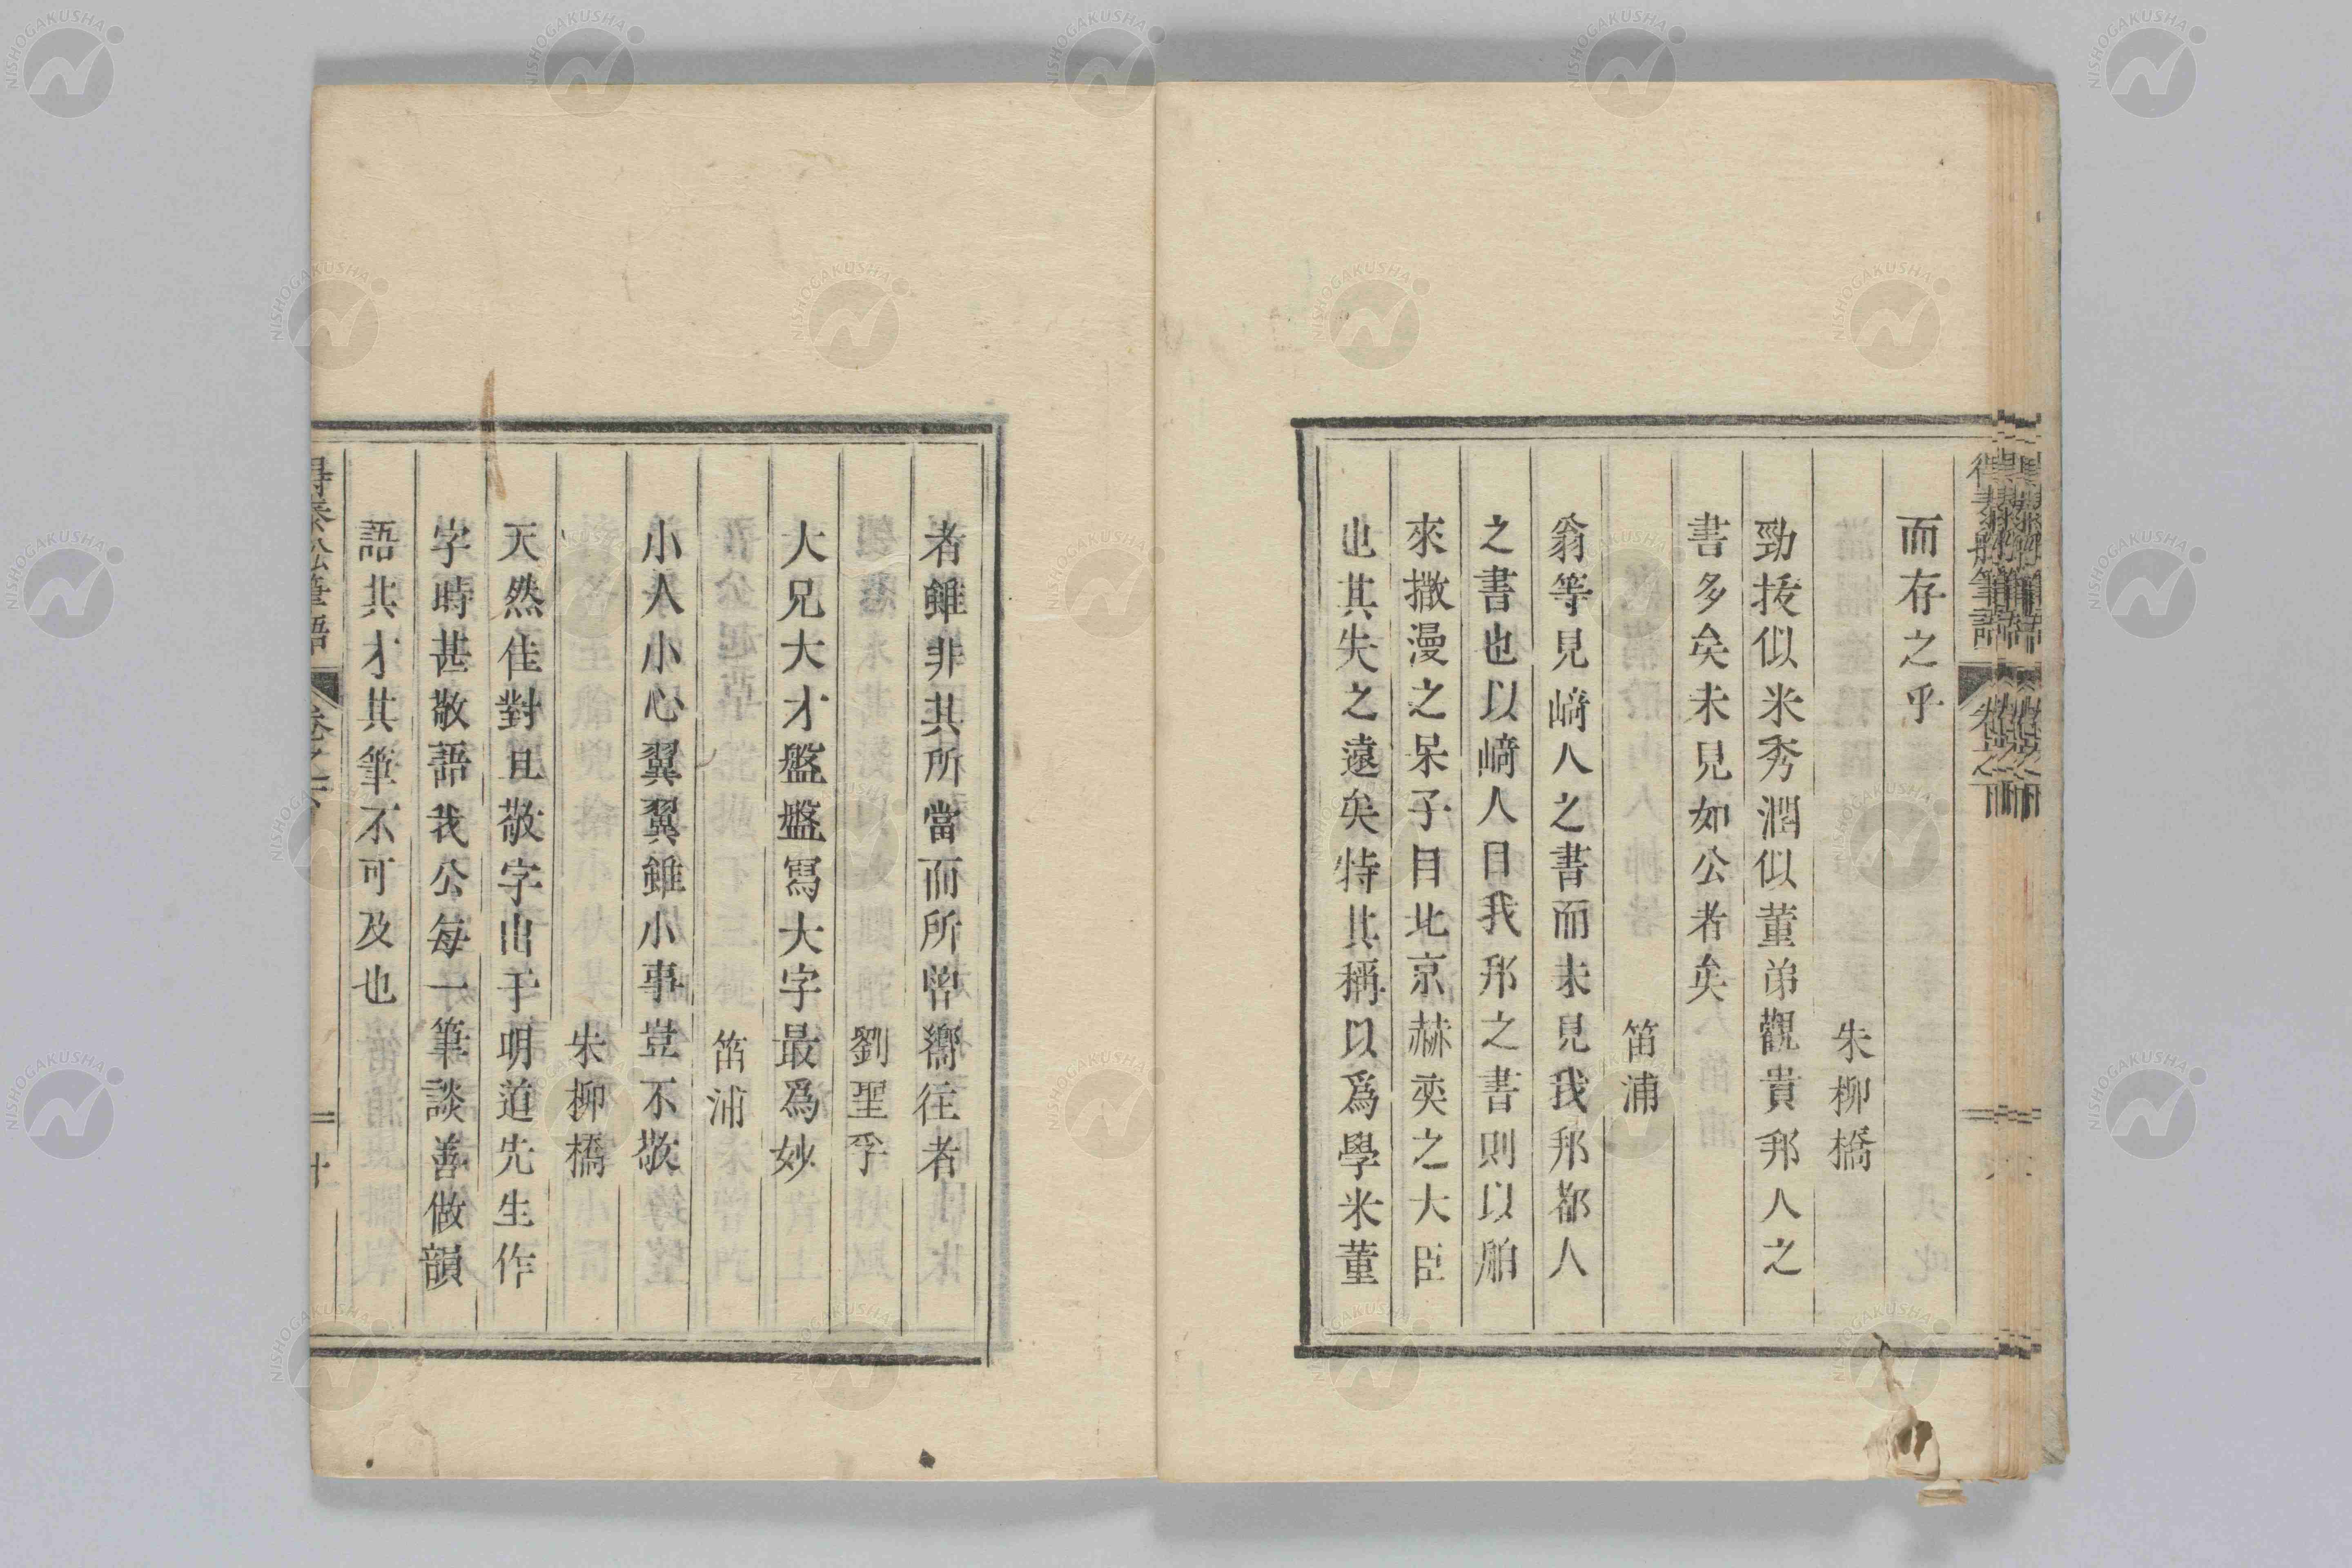 而存之乎
朱柳橋
勁拔似米秀潤似董弟觀貴邦人之
書多矣未見如公者矣
笛浦
翁等見﨑人之書而未見我邦都人
之書也以﨑人曰我邦之書則以舶
來撒漫之呆子目北京赫奕之大臣
也其失之遠矣特其稱以爲學米董
者雖非其所當而所曾嚮往者
劉聖孚
大兄大才盤盤寫大字最爲妙
笛浦
小人小心翼翼雖小事豈不敬
朱柳橋
天然佳對且敬字出于明道先生作
字時甚敬語我公每一筆談善做韻
語其才其筆不可及也
得泰船筆語
卷之
十